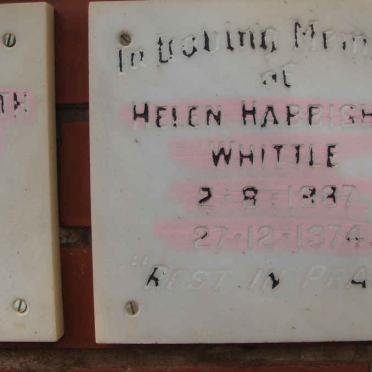 In Loving Mem
of
TH
HELEN HARRISH
WHITTLE
27-12-1974
"REST IN PEA